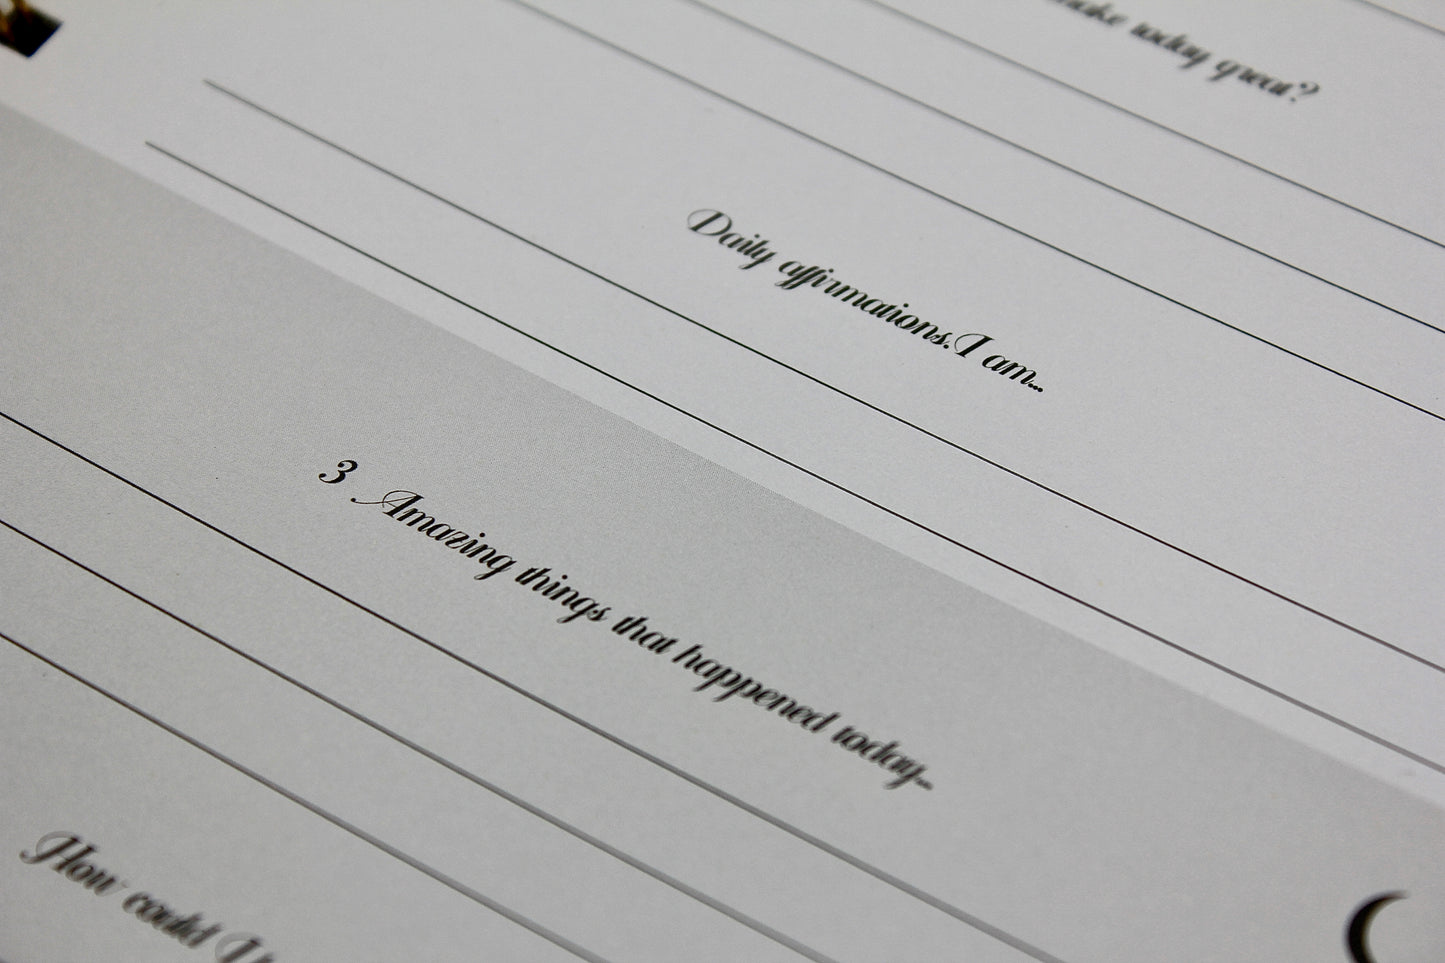 make today great?
Daily affirmations. I am...
3 Amazing things that happened today...
How could I